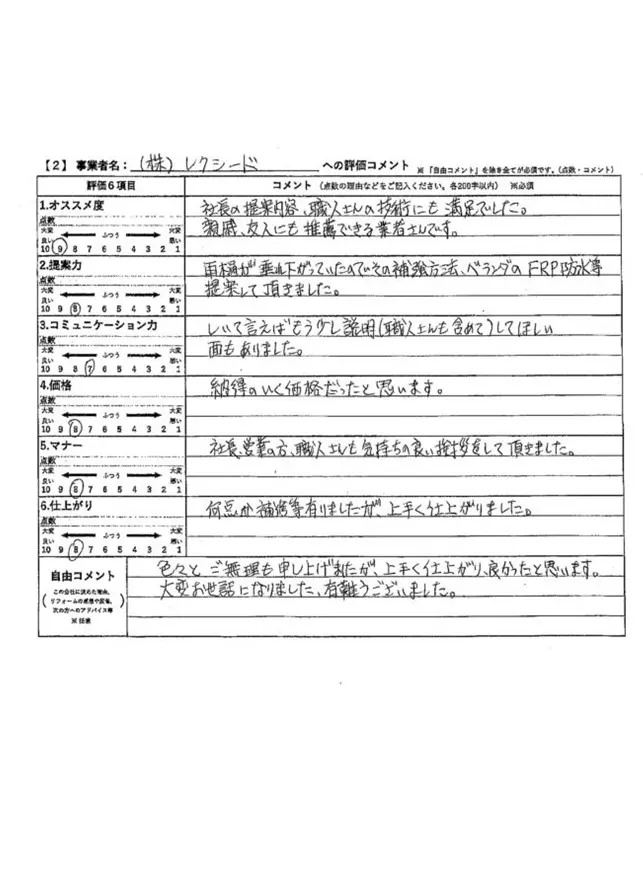 【2】 事業者名: (株)レクシード への評価コメント ※「自由コメント」を除き全てが必須です。(点数・コメント)
評価6項目 コメント (点数の理由などをご記入ください。各200字以内) ※必須
1.オススメ度
点数
大変良い ふつう 大変悪い
10 9 8 7 6 5 4 3 2 1
社長の提案内容、職人さんの技術にも満足でした。
親戚、友人にも推薦できる業者さんです。
2.提案力
点数
大変良い ふつう 大変悪い
10 9 8 7 6 5 4 3 2 1
雨樋が垂れ下がっていたのでその補強方法、ベランダのFRP防水等
提案して頂きました。
3.コミュニケーション力
点数
大変良い ふつう 大変悪い
10 9 8 7 6 5 4 3 2 1
しいて言えばもう少し説明(職人さんも含めて)してほしい
面もありました。
4.価格
点数
大変良い ふつう 大変悪い
10 9 8 7 6 5 4 3 2 1
納得のいく価格だったと思います。
5.マナー
点数
大変良い ふつう 大変悪い
10 9 8 7 6 5 4 3 2 1
社長、営業の方、職人さんも気持ちの良い挨拶をして頂きました。
6.仕上がり
点数
大変良い ふつう 大変悪い
10 9 8 7 6 5 4 3 2 1
何点か補修等有りましたが、上手く仕上がりました。
自由コメント
この会社に決めた理由、
リフォームの感想や反省、
次の方へのアドバイス等
※任意
色々とご無理も申し上げましたが、上手く仕上がり、良かったと思います。
大変お世話になりました、有難うございました。